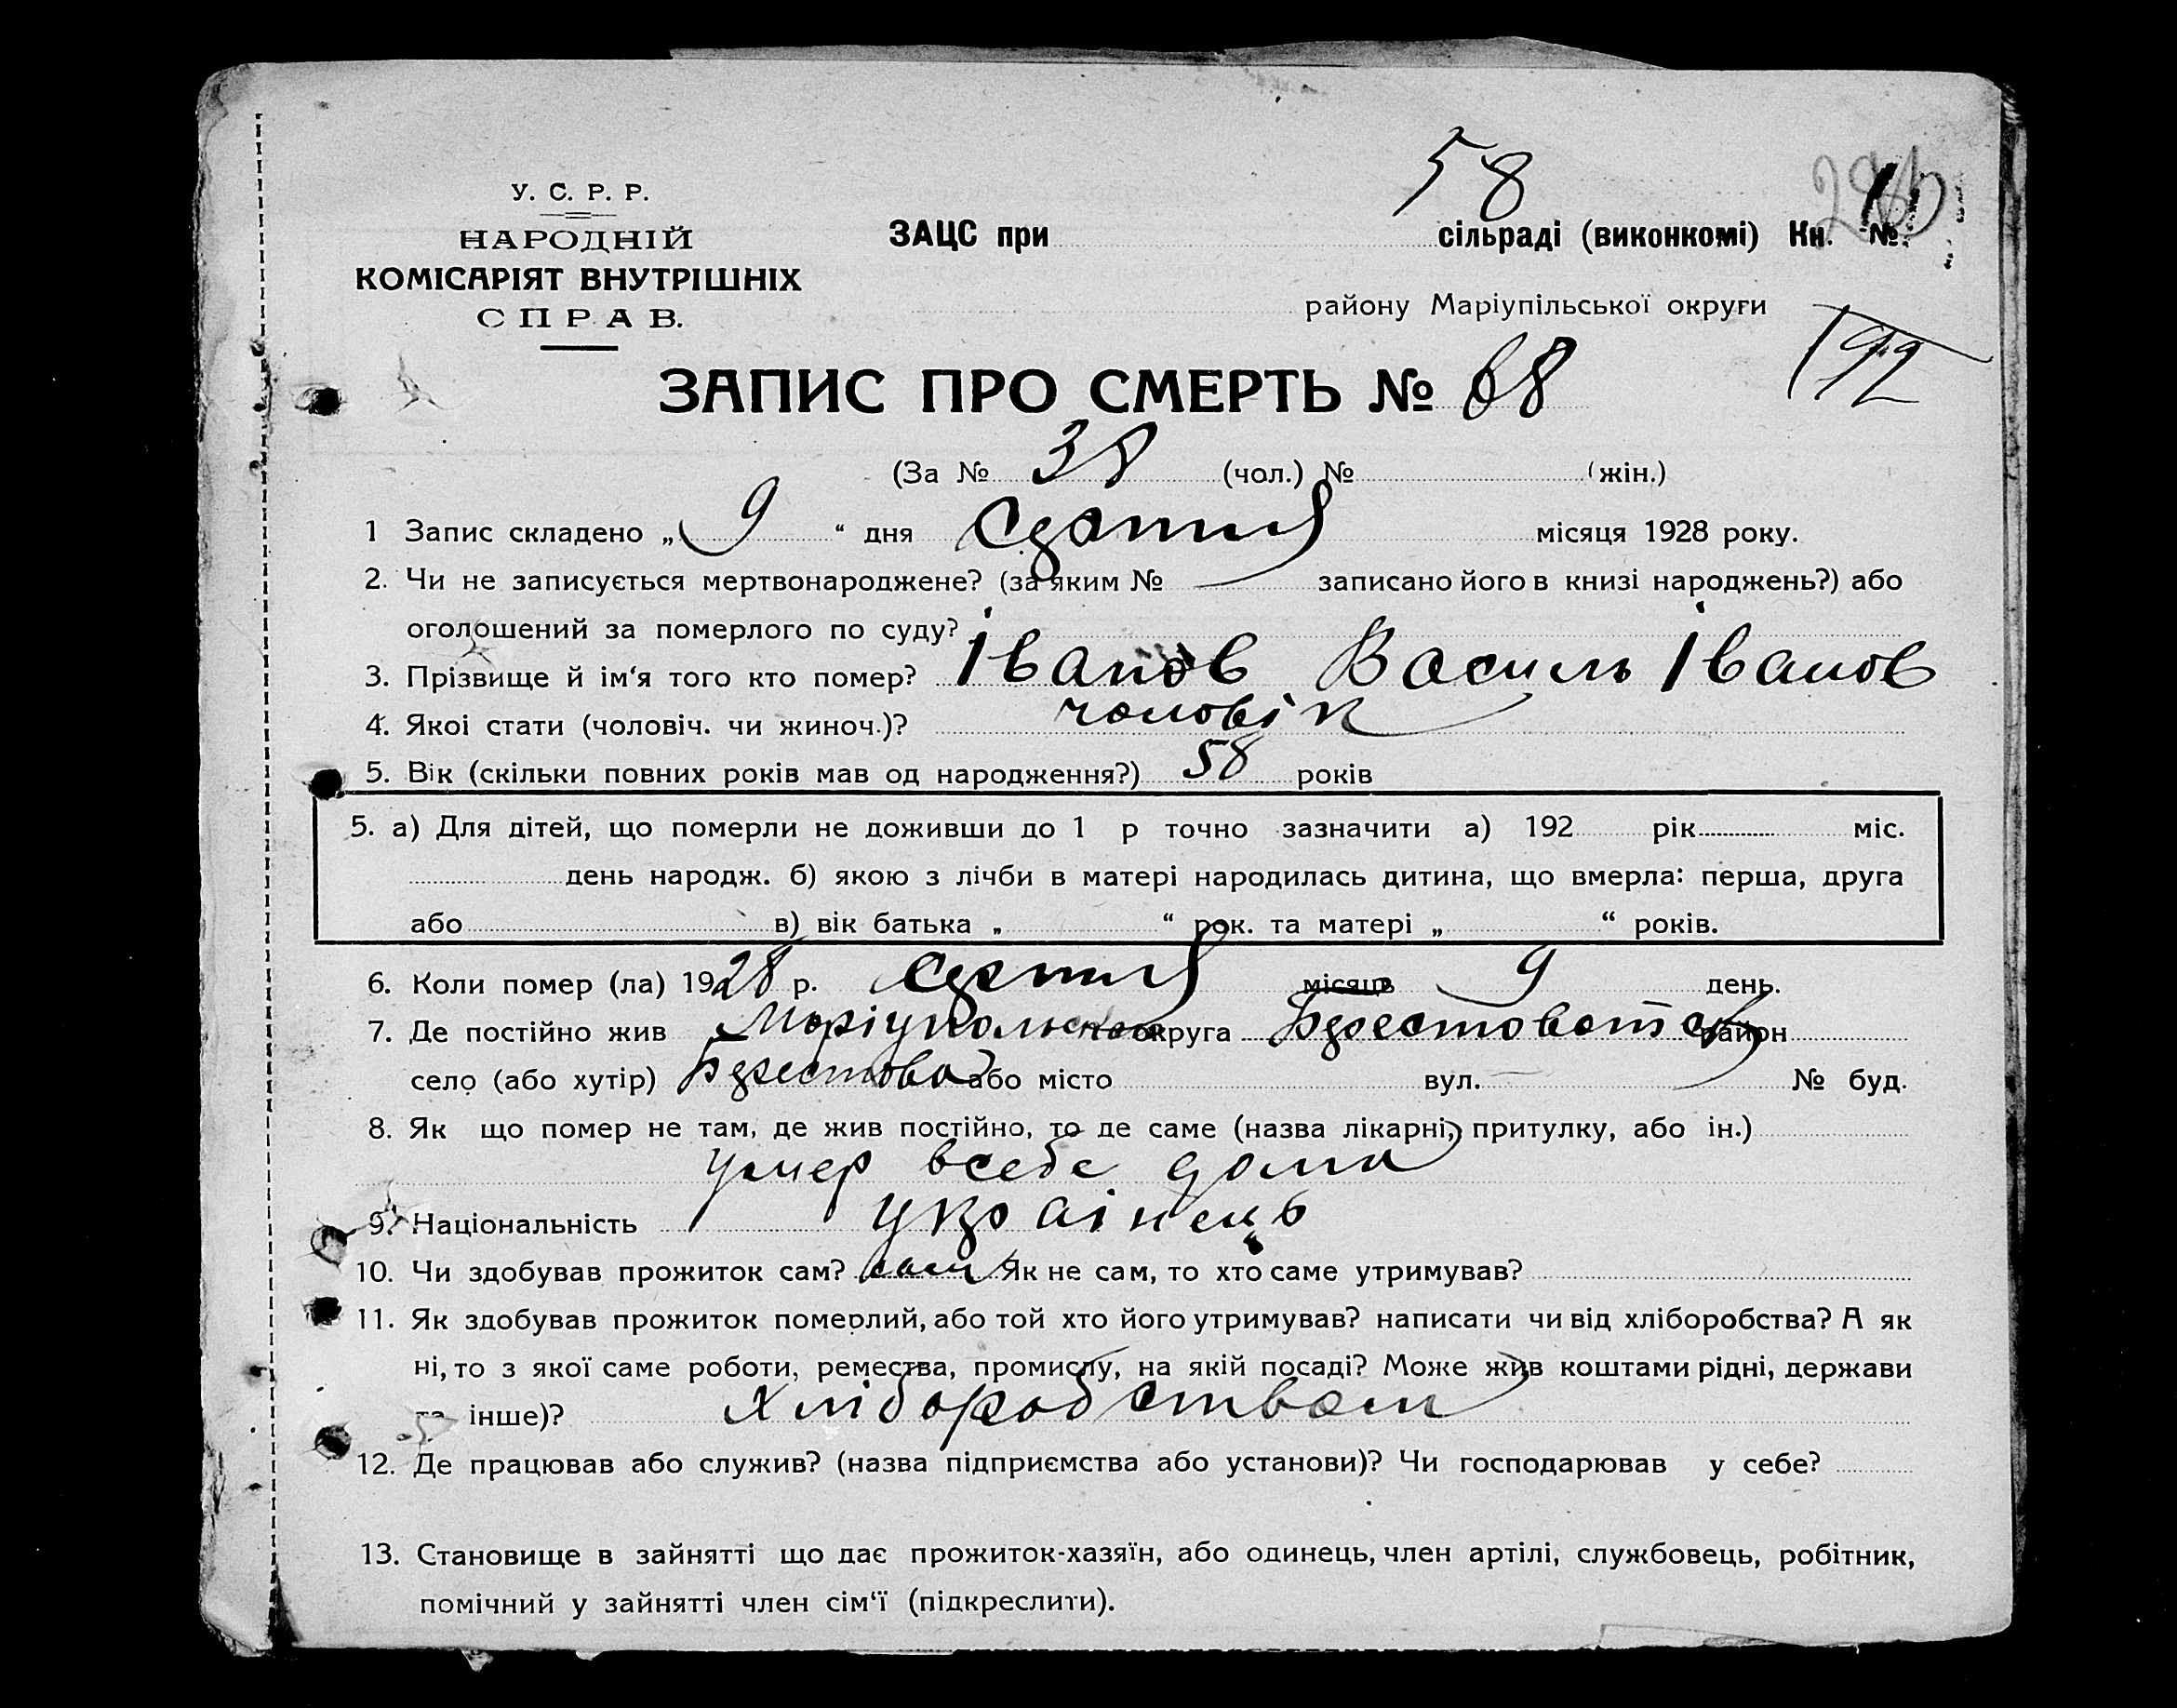 58
У. С. Р. Р.
НАРОДНІЙ
КОМІСАРІЯТ ВНУТРІШНІХ
СПРАВ.
ЗАЦС при сільраді (виконкомі) Кн. №
району Маріупільської округи
192
ЗАПИС ПРО СМЕРТЬ № 68
(За № 38 (чол.) № (жін.)
1 Запис складено „ 9 “ дня місяця 1928 року.
2. Чи не записується мертвонароджене? (за яким № записано його в книзі народжень?) або
оголошений за померлого по суду?
3. Прізвище й ім‘я того кто помер? Іванов Василь Іванов
4. Якоі стати (чоловіч. чи жиноч.)? чоловік
5. Вік (скільки повних років мав од народження?) 58 років
5. а) Для дітей, що померли не доживши до 1 р точно зазначити а) 192 рік міс.
день народж. б) якою з лічби в матері народилась дитина, що вмерла: перша, друга
або в) вік батька „ “ рок. та матері „ “ років.
6. Коли помер (ла) 1928 р. місяць 9 день.
7. Де постійно жив округа район
село (або хутір) або місто вул. № буд.
8. Як що помер не там, де жив постійно, то де саме (назва лікарні, притулку, або ін.)
умер всебе дома
9. Національність українець
10. Чи здобував прожиток сам? сам Як не сам, то хто саме утримував?
11. Як здобував прожиток померлий, або той хто його утримував? написати чи від хліборобства? А як
ні, то з якої саме роботи, ремества, промислу, на якій посаді? Може жив коштами рідні, держави
та інше)? Хліборобством
12. Де працював або служив? (назва підприємства або установи)? Чи господарював у себе?
13. Становище в зайнятті що дає прожиток-хазяїн, або одинець, член артілі, службовець, робітник,
помічний у зайнятті член сім‘ї (підкреслити).